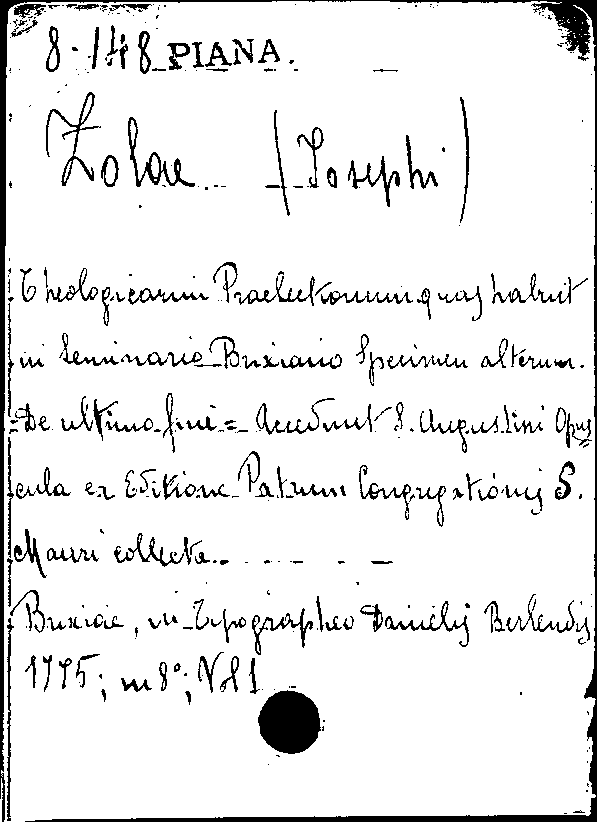 8-148 PIANA.
Zolae (Josephi)
Theologicarum Praelectionum quas habuit
in Seminario Brixiano Specimen alterum.
= De ultimo fine = Accedunt S. Augustini Opus
cula ex Editione Patrum Congregationis S.
Mauri collecta.
Brixiae, in Typographeo Danielis Berlendis
1775; in 8°; Vol 1